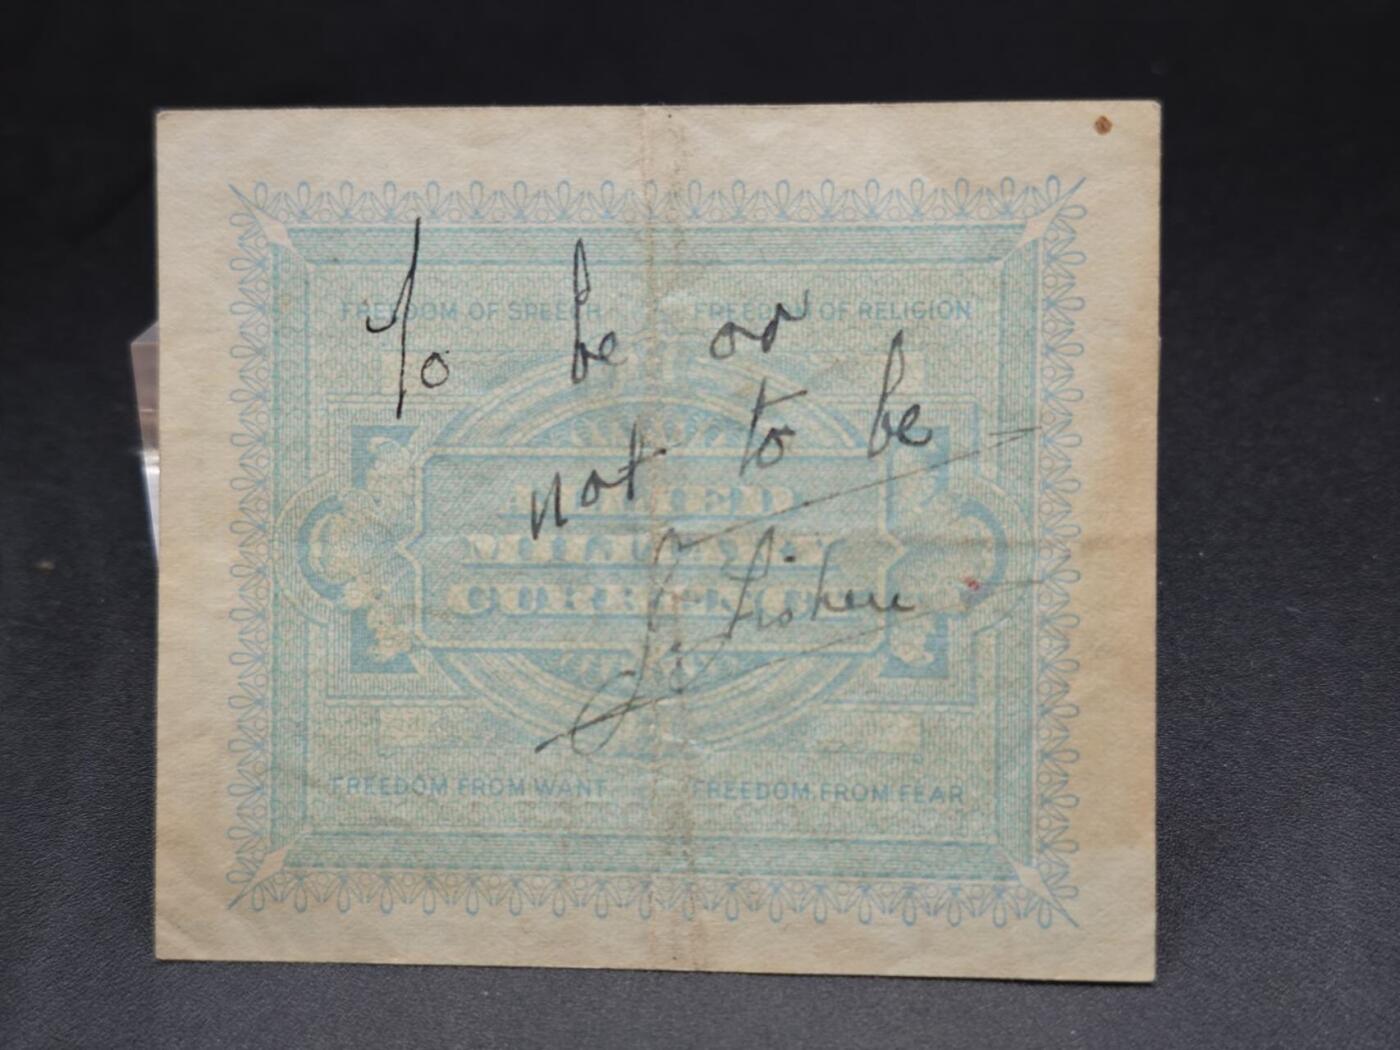 FREEDOM OF SPEECH FREEDOM OF RELIGION
To be or
not to be
ALLIED
MILITARY
CURRENCY
FREEDOM FROM WANT FREEDOM FROM FEAR